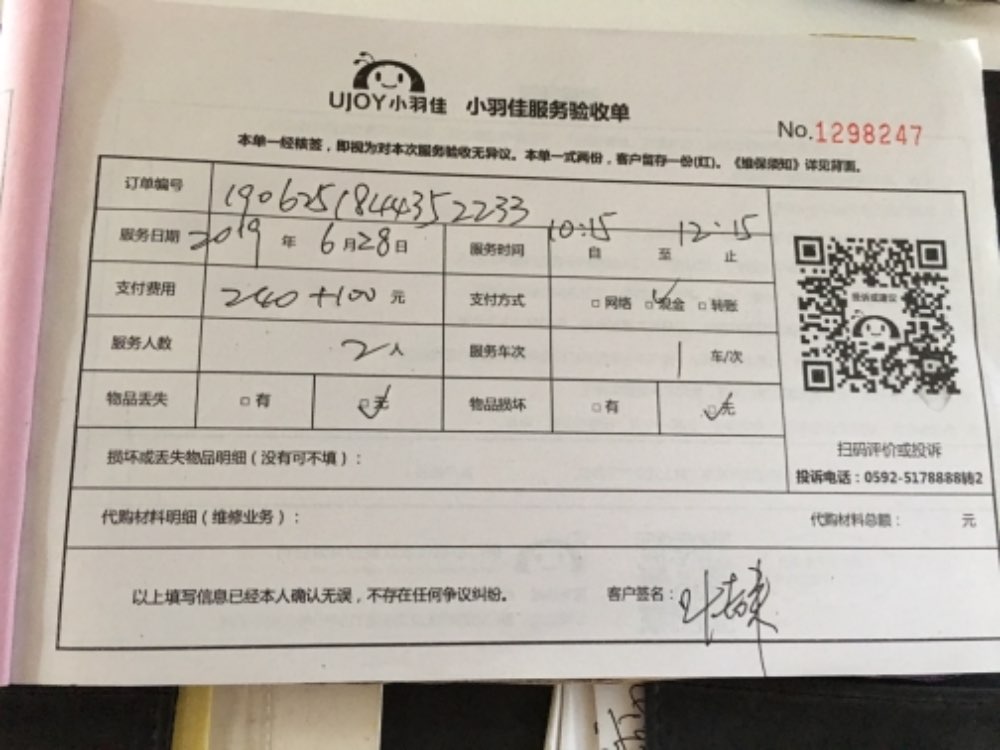 UJOY小羽佳 小羽佳服务验收单
No.1298247
本单一经核签，即视为对本次服务验收无异议。本单一式两份，客户留存一份(红)。《维保须知》详见背面。
订单编号 1906251844352233
服务日期 2019 年 6月28日 服务时间 10:15 自 至 12:15 止
支付费用 240+100 元 支付方式 □网络 □现金 □转账
投诉或建议
服务人数 2人 服务车次 1 车/次
物品丢失 □有 □无 物品损坏 □有 □无
扫码评价或投诉
损坏或丢失物品明细（没有可不填）：
投诉电话：0592-5178888转2
代购材料明细（维修业务）： 代购材料总额： 元
以上填写信息已经本人确认无误，不存在任何争议纠纷。 客户签名：